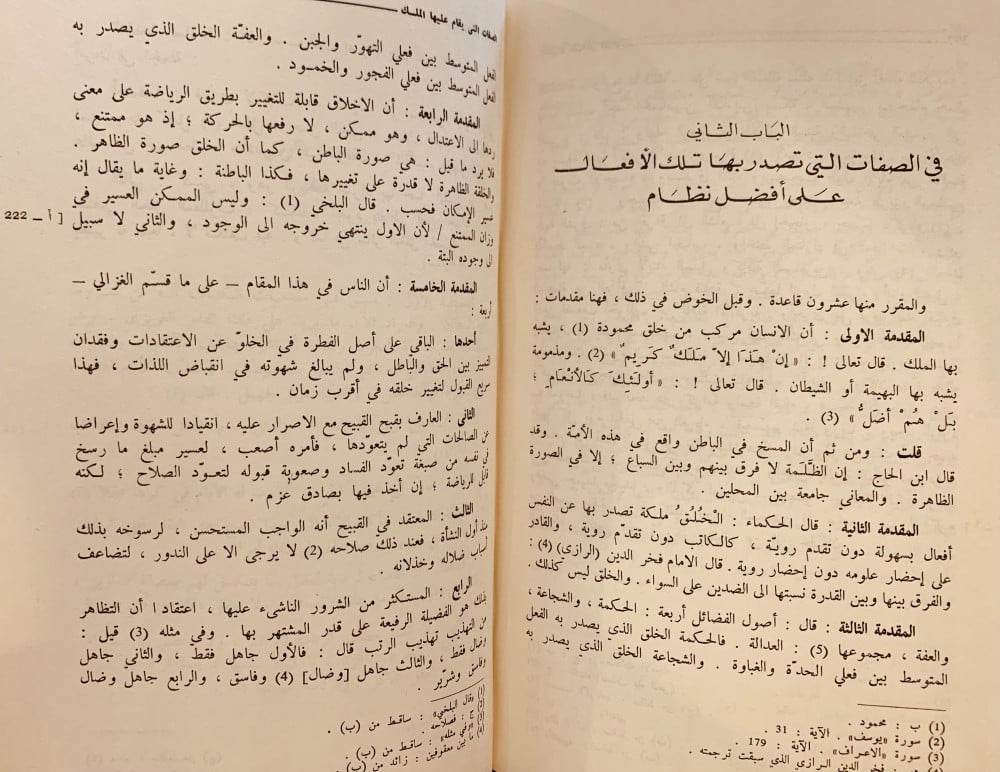 الباب الثاني
في الصفات التي تصدر بها تلك الأفعال
على أفضل نظام
والمقرر منها عشرون قاعدة . وقبل الخوض في ذلك ، فهنا مقدمات :
المقدمة الاولى : أن الانسان مركب من خلق محمودة (1) ، يشبه
بها الملك . قال تعالى ! : « إِنْ هَذَا إِلاَّ مَلَكٌ كَرِيمٌ » (2) . ومذمومة
يشبه بها البهيمة أو الشيطان . قال تعالى ! : « أولَئِكَ كَالأنْعَامِ ؛
بَلْ هُمْ أضَلُّ » (3) .
قلت : ومن ثم أن المسخ في الباطن واقع في هذه الأمّة . وقد
قال ابن الحاج : إن الظَّلَمة لا فرق بينهم وبين السباع ؛ إلا في الصورة
الظاهرة . والمعاني جامعة بين المحلين .
المقدمة الثانية : قال الحكماء : الْخُلُقُ ملكة تصدر بها عن النفس
أفعال بسهولة دون تقدم رويّة ، كالكاتب دون تقدّم روية ، والقادر
على إحضار علومه دون إحضار روية . قال الامام فخر الدين (الرازي) (4) :
والفرق بينها وبين القدرة نسبتها الى الضدين على السواء . والخلق ليس كذلك .
المقدمة الثالثة : قال : أصول الفضائل أربعة : الحكمة ، والشجاعة ،
والعفة ، مجموعها (5) : العدالة . فالحكمة الخلق الذي يصدر به الفعل
المتوسط بين فعلي الحدّة والغباوة . والشجاعة الخلق الذي يصدر به
(1) ب : محمود .
(2) سورة «يوسف» . الآية : 31 .
(3) سورة «الاعراف» . الآية : 179 .
(4) فخر الدين الرازي الذي سبقت ترجمته .
الصفات التي يقام عليها الملك
الفعل المتوسط بين فعلي التهوّر والجبن . والعفّة الخلق الذي يصدر به
الفعل المتوسط بين فعلي الفجور والخمود .
المقدمة الرابعة : أن الاخلاق قابلة للتغيير بطريق الرياضة على معنى
ردها الى الاعتدال ، وهو ممكن ، لا رفعها بالحركة ؛ إذ هو ممتنع ،
فلا يرد ما قيل : هي صورة الباطن ، كما أن الخلق صورة الظاهر .
والخلقة الظاهرة لا قدرة على تغييرها ، فكذا الباطنة : وغاية ما يقال إنه
عسير الإمكان فحسب . قال البلخي (1) : وليس الممكن العسير في
وزان الممتنع / لأن الاول ينتهي خروجه الى الوجود ، والثاني لا سبيل [ أ ــ 222
الى وجوده البتة .
المقدمة الخامسة : أن الناس في هذا المقام ــ على ما قسّم الغزالي ــ
أربعة :
أحدها : الباقي على أصل الفطرة في الخلوّ عن الاعتقادات وفقدان
التمييز بين الحق والباطل ، ولم يبالغ شهوته في انقباض اللذات ، فهذا
سريع القبول لتغيير خلقه في أقرب زمان .
الثاني : العارف بقبح القبيح مع الاصرار عليه ، انقيادا للشهوة وإعراضا
عن الصالحات التي لم يتعوّدها ، فأمره أصعب ، لعسير مبلغ ما رسخ
في نفسه من صبغة تعوّد الفساد وصعوبة قبوله لتعوّد الصلاح ؛ لكنه
قابل للرياضة ؛ إن أخذ فيها بصادق عزم .
الثالث : المعتقد في القبيح أنه الواجب المستحسن ، لرسوخه بذلك
منذ أول النشأة ، فعند ذلك صلاحه (2) لا يرجى الا على الندور ، لتضاعف
أسباب ضلاله وخذلانه .
الرابع : المستكثر من الشرور الناشىء عليها ، اعتقادا أن التظاهر
بذلك هو الفضيلة الرفيعة على قدر المشتهر بها . وفي مثله (3) قيل :
من التهذيب تهذيب الرتب قال : فالأول جاهل فقط ، والثاني جاهل
وضال فقط ، والثالث جاهل [وضال] (4) وفاسق ، والرابع جاهل وضال
وفاسق وشرير .
(1) «قال البلخي» : ساقط من (ب) .
(2) ج : فصلاحه .
(3) «وفي مثله» : ساقط من (ب) .
(4) ما بين معقوفين : زائد من (ب) .